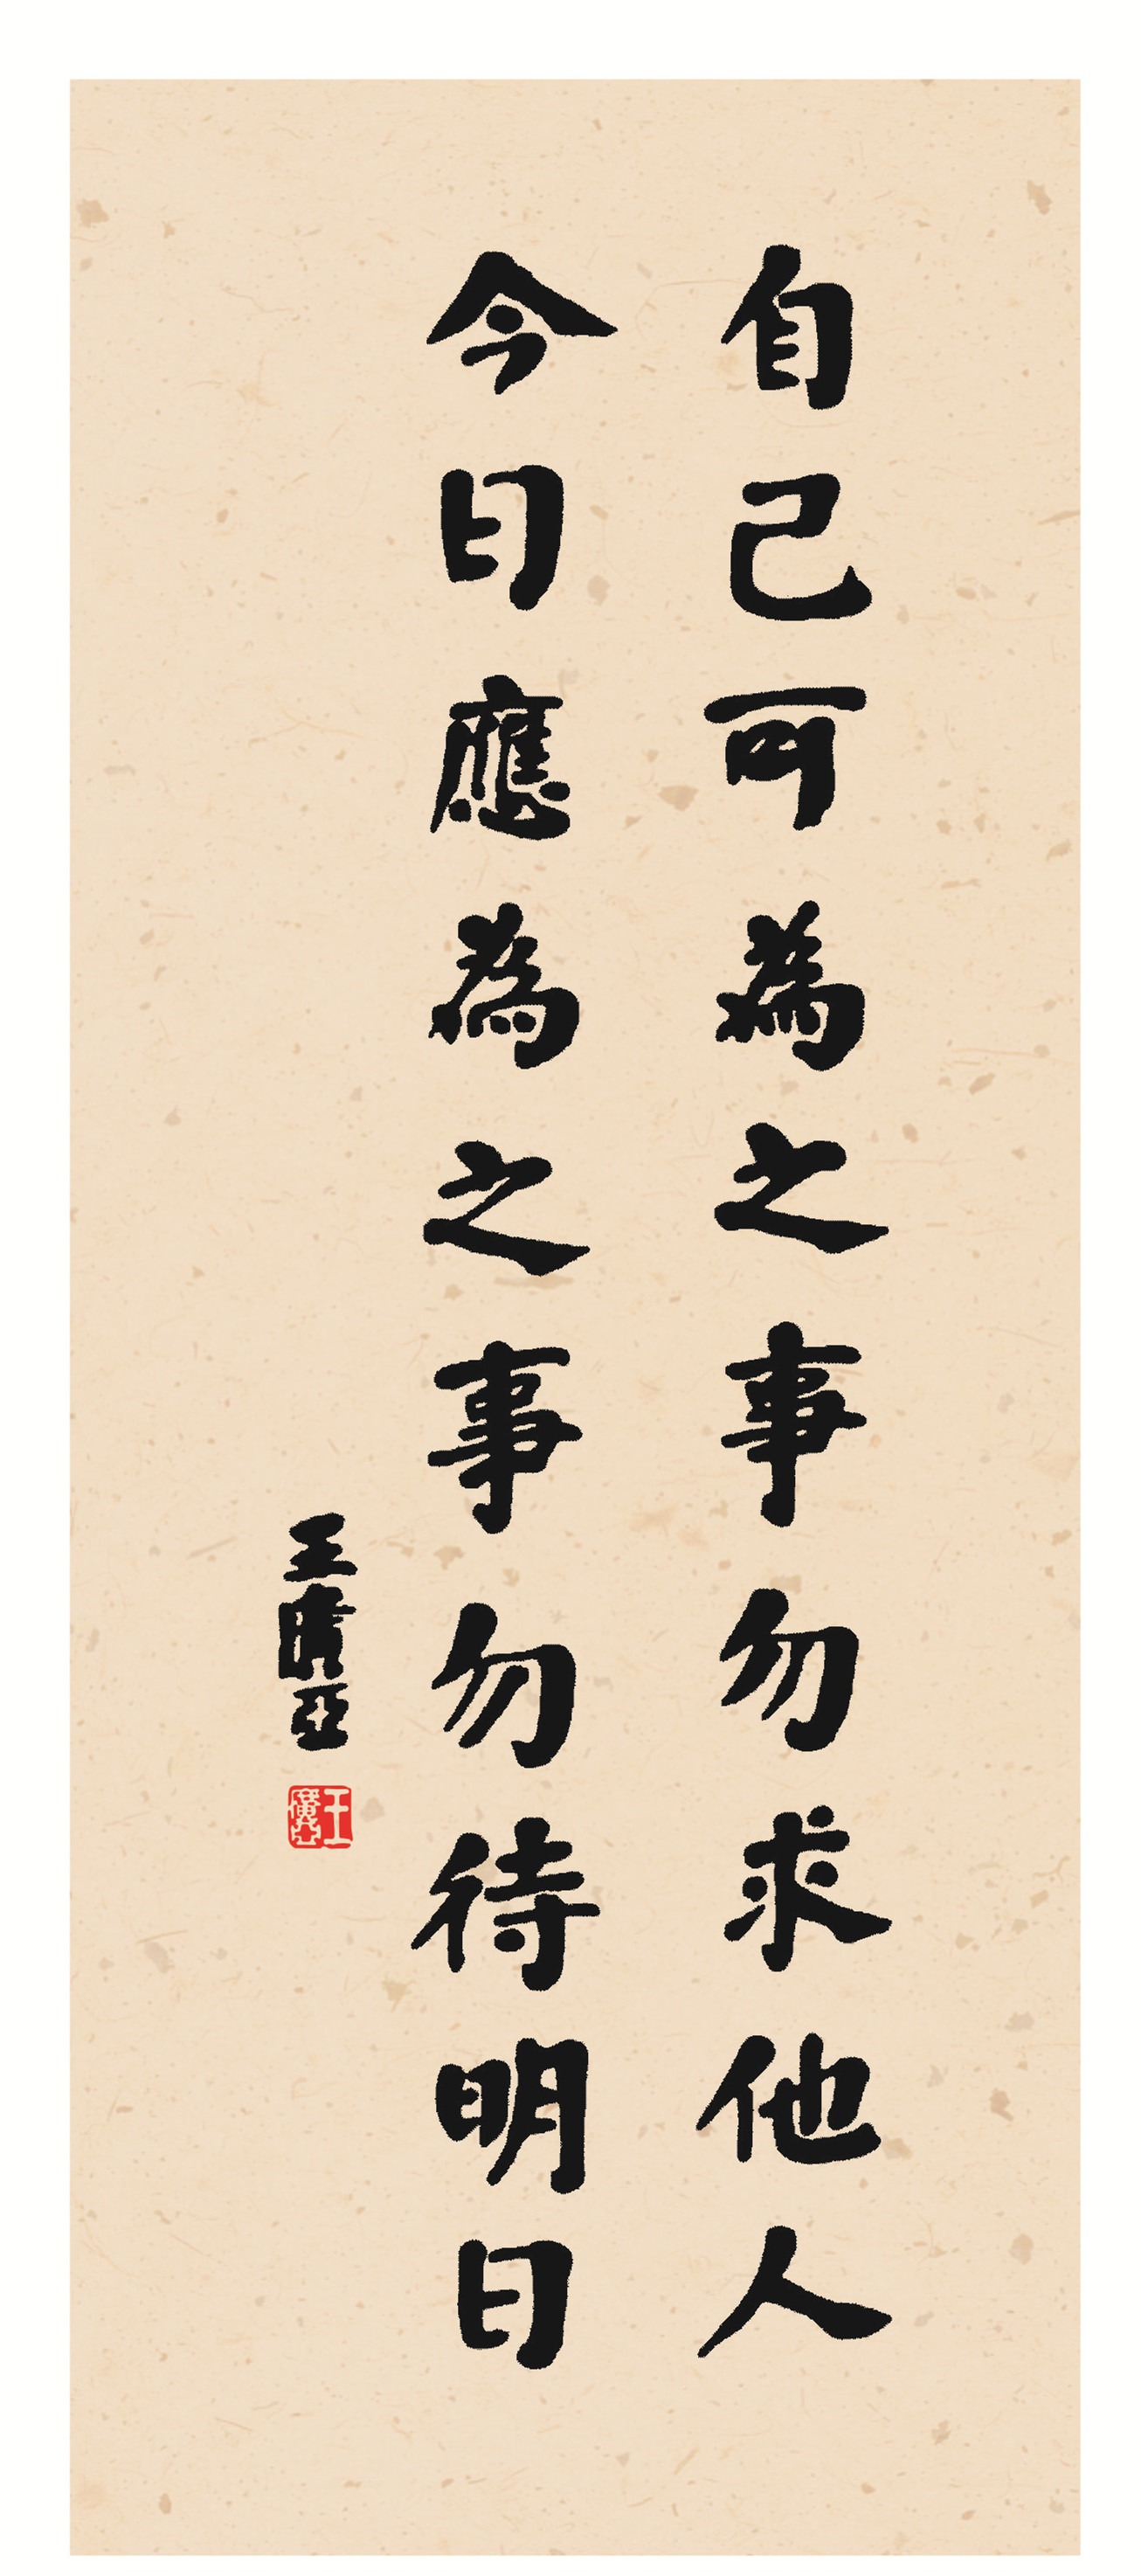 自己可為之事勿求他人
今日應為之事勿待明日
王
亞
王